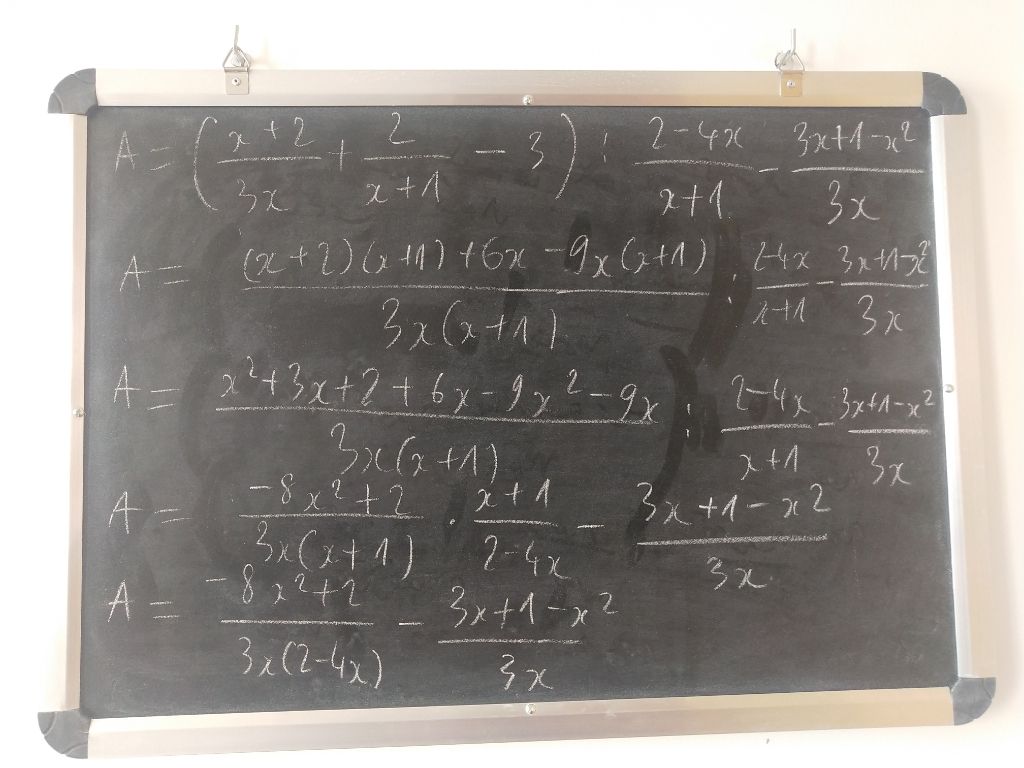 A = ( (x+2)/(3x) + 2/(x+1) - 3 ) : (2-4x)/(x+1) - (3x+1-x²)/(3x)
A = ((x+2)(x+1)+6x-9x(x+1))/(3x(x+1)) : (2-4x)/(x+1) - (3x+1-x²)/(3x)
A = (x²+3x+2+6x-9x²-9x)/(3x(x+1)) : (2-4x)/(x+1) - (3x+1-x²)/(3x)
A = (-8x²+2)/(3x(x+1)) · (x+1)/(2-4x) - (3x+1-x²)/(3x)
A = (-8x²+2)/(3x(2-4x)) - (3x+1-x²)/(3x)